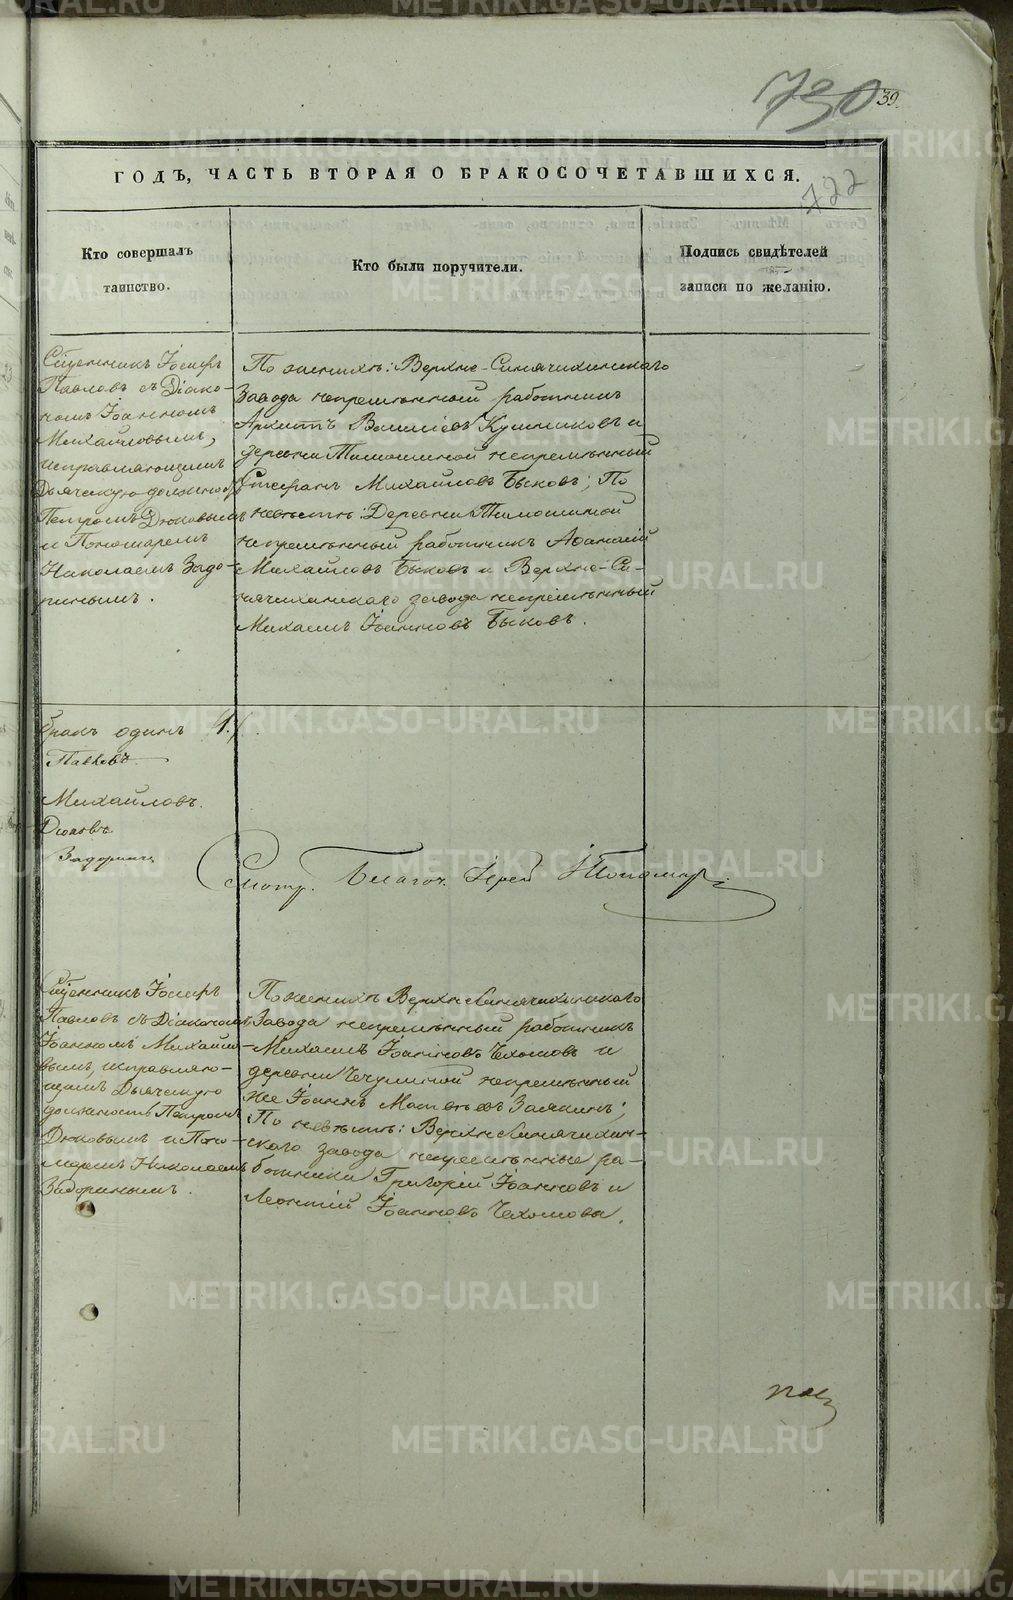 730
39.
722
ГОДЪ, ЧАСТЬ ВТОРАЯ О БРАКОСОЧЕТАВШИХСЯ.
Кто совершалъ
таинство.
Кто были поручители.
Подпись свидѣтелей
записи по желанію.
Священникъ Іосифъ
Павловъ съ Діако-
номъ Іоанномъ
Михайловымъ,
исправляющимъ
Дьяческую должность
Петромъ Дюковымъ
и Пономаремъ
Николаемъ Задо-
ринымъ.
По женихѣ: Верхне-Синячихинскаго
Завода непремѣнный работникъ
Архипъ Кушниковъ и
деревни Тимошиной непремѣнный
Стефанъ Михайловъ Быковъ; По
невѣстѣ: Деревни Тимошиной
непремѣнный работникъ Афанасій
Михайловъ Быковъ и Верхне-Си-
нячихинскаго завода непремѣнный
Михаилъ Іоанновъ Быковъ.
бракъ одинъ 1.
Павловъ
Михайловъ.
Дюковъ
Задоринъ
Смотр. Благоч. Іерей
Священникъ Іосифъ
Павловъ съ Діакономъ
Іоанномъ Михайло-
вымъ, исправляю-
щимъ Дьяческую
должность Петромъ
Дюковымъ и Поно-
маремъ Николаемъ
Задоринымъ.
По женихѣ Верхнесинячихинскаго
Завода непремѣнный работникъ
Михаилъ Іоанновъ Чехомовъ и
деревни непремѣнный
же Іоаннъ Матвѣевъ Заякинъ;
По невѣстѣ: Верхнесинячихин-
скаго завода непремѣнные ра-
ботники Григорій Іоанновъ и
Леонтій Іоанновъ Чехомовы.
METRIKI.GASO-URAL.RU